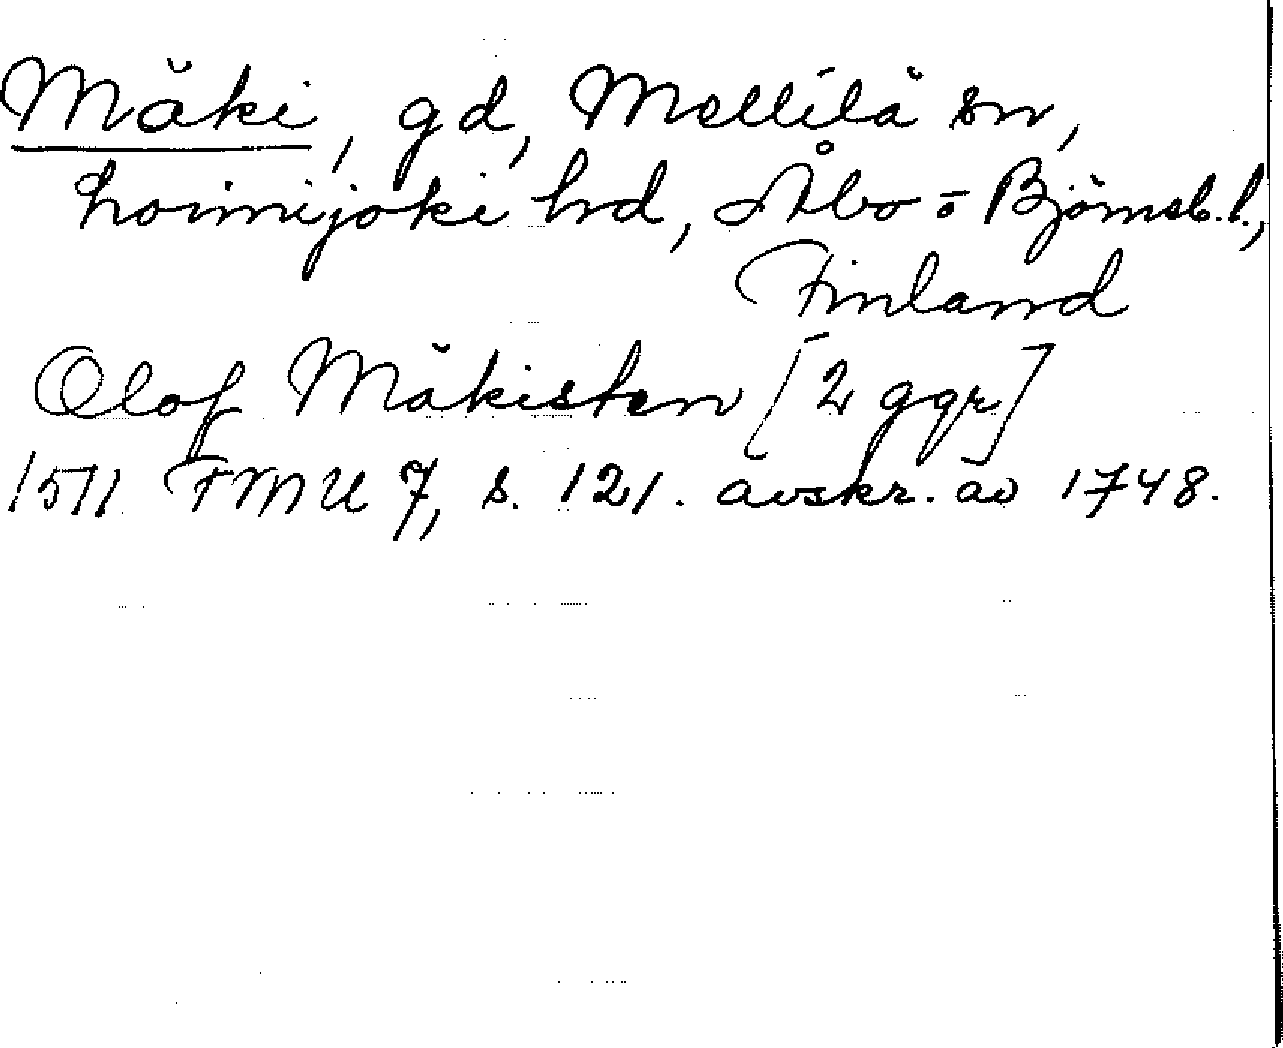 Mäki, gd, Mellilä sn,
Loimijoki hd, Åbo o Björneb. l.,
Finland
Olof Mäkisten [2 ggr]
1511 FMU 7, s. 121. avskr. av 1748.